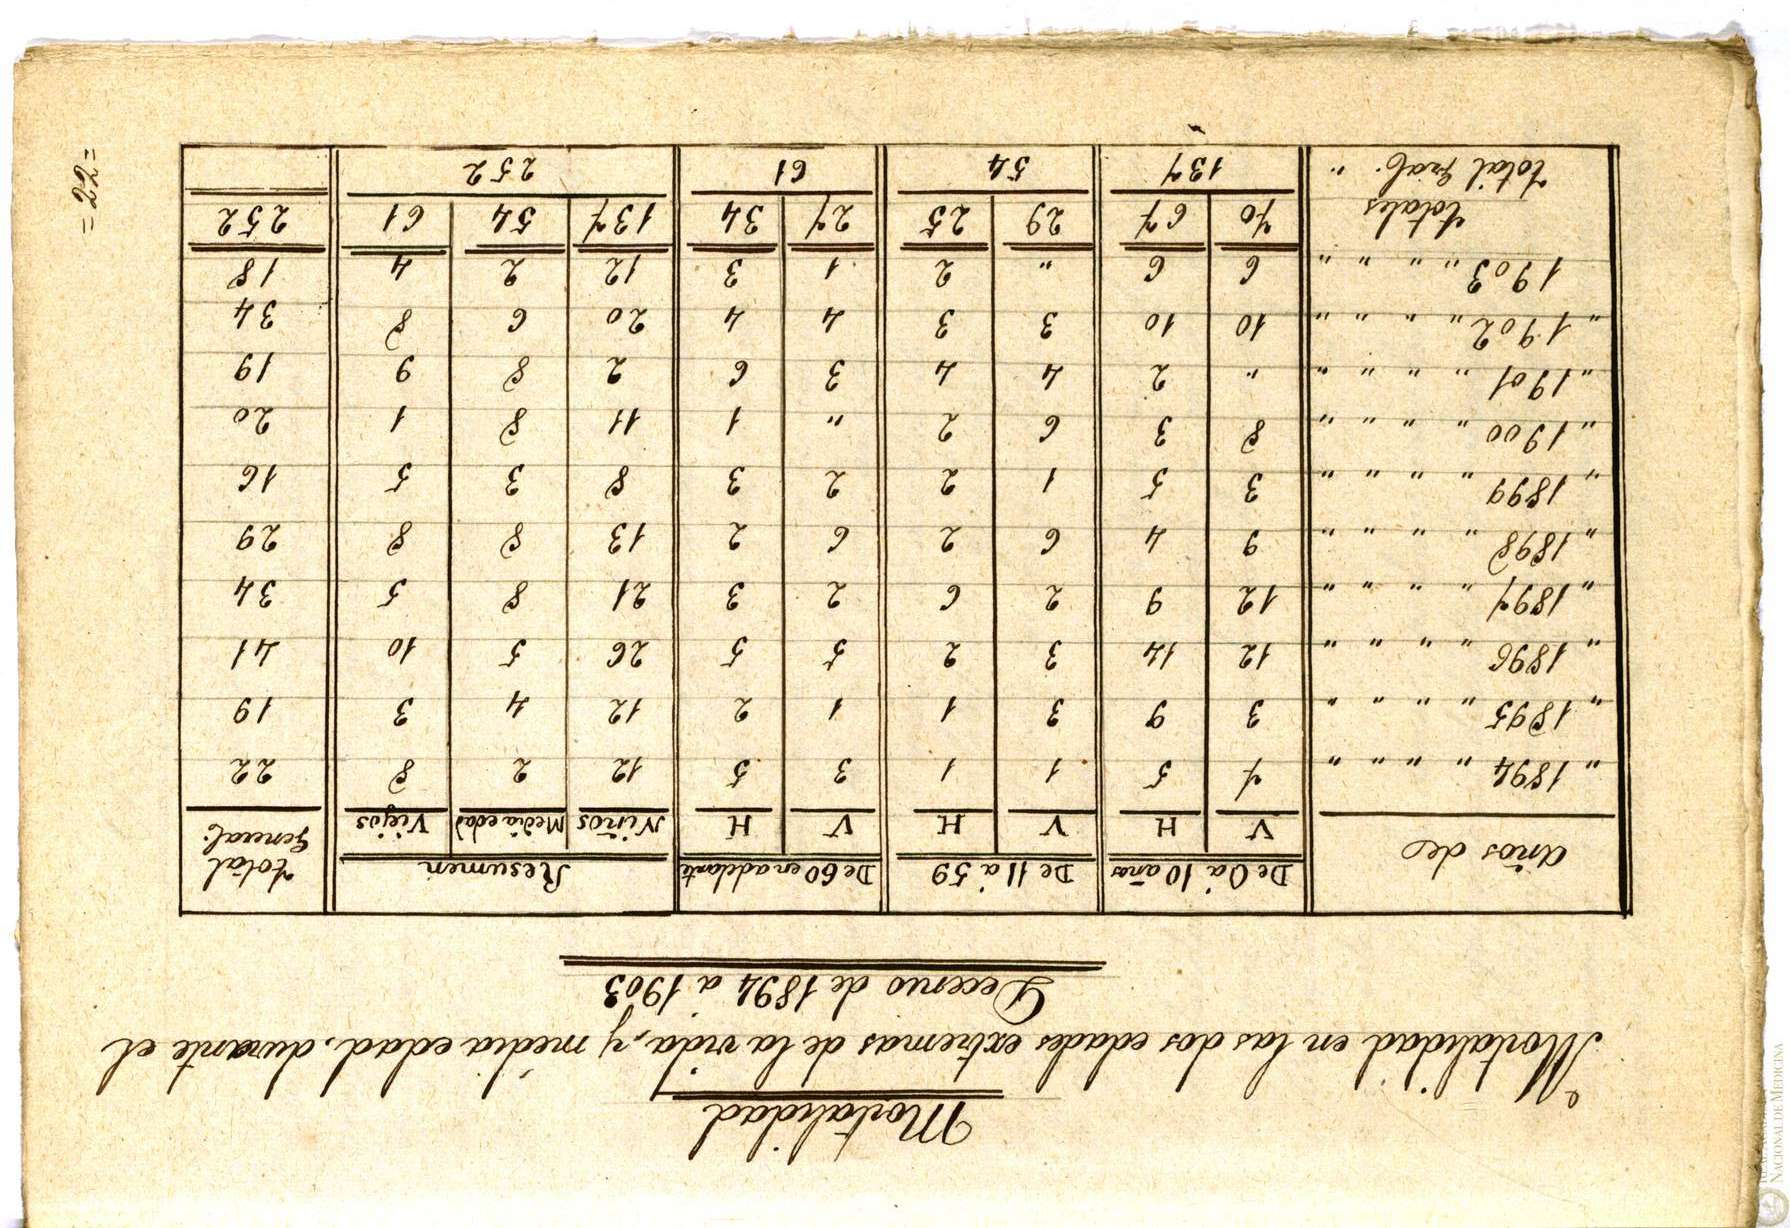 Mortalidad
Mortalidad en las dos edades extremas de la vida, y media edad, durante el
Decenio de 1894 a 1903
Años de De 0 á 10 años De 11 á 59 De 60 en adelante Resumen total General.
V H V H V H Niños Media edad Viejos
" 1894 " " " " 7 5 1 1 3 5 12 2 8 22
" 1895 " " " " 3 9 3 1 1 2 12 4 3 19
" 1896 " " " " 12 14 3 2 5 5 26 5 10 41
" 1897 " " " " 12 9 2 6 2 3 21 8 5 34
" 1898 " " " " 9 4 6 2 6 2 13 8 8 29
" 1899 " " " " 3 5 1 2 2 3 8 3 5 16
" 1900 " " " " 8 3 6 2 " 1 11 8 1 20
" 1901 " " " " " 2 4 4 3 6 2 8 9 19
" 1902 " " " " 10 10 3 3 4 4 20 6 8 34
1903 " " " " 6 6 " 2 1 3 12 2 4 18
totales 70 67 29 25 27 34 137 54 61 252
total gral. " 137 54 61 252
= 22 =
NACIONAL DE MEDICINA